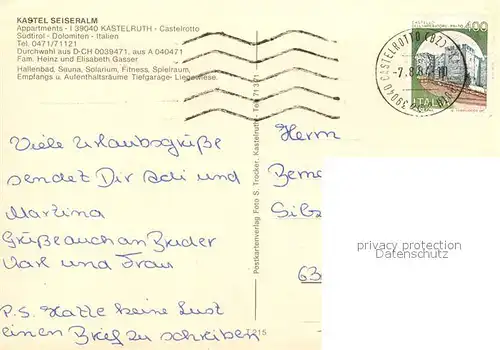 KASTEL SEISERALM
Appartments - I 39040 KASTELRUTH - Castelrotto
Südtirol - Dolomiten - Italien
Tel. 0471/71121
Durchwahl aus D-CH 0039471, aus A 040471
Fam. Heinz und Elisabeth Gasser
Hallenbad, Sauna, Solarium, Fitness, Spielraum,
Empfangs u. Aufenthaltsräume Tiefgarage- Liegewiese.
400
39040 CASTELROTTO (BZ)
ITALIA
Viele Urlaubsgrüße
sendet Dir Adi und
Martina
Grüße auch an Bruder
Karl und Frau
P.S. Hatte keine Lust
einen Brief zu schreiben
Postkartenverlag Foto S. Trocker, Kastelruth - Tel. 71301
Herrn
privacy protection
Datenschutz